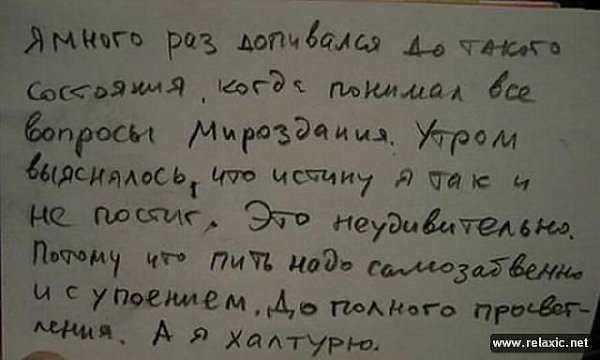 Я много раз допивался до такого
состояния, когда понимал все
вопросы Мироздания. Утром
выяснялось, что истину я так и
не постиг. Это неудивительно.
Потому что пить надо самозабвенно
и с упоением. До полного просвет-
ления. А я халтурю.
www.relaxic.net